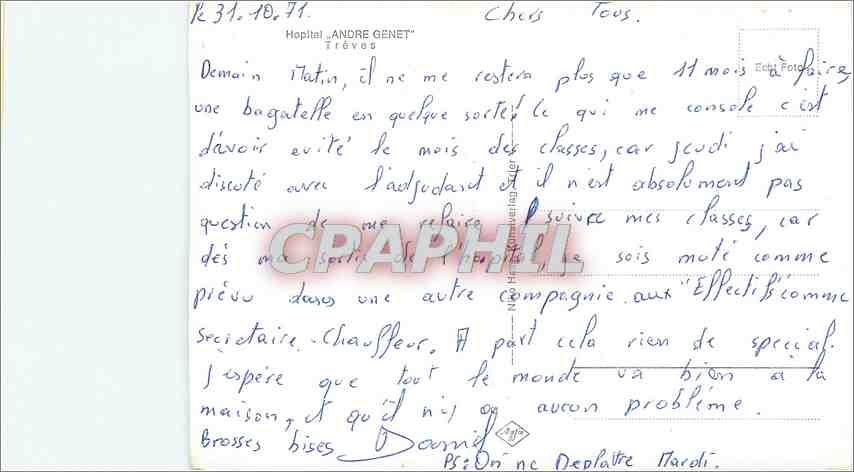 le 31.10.71. Chers Tous.
Hopital „ANDRE GENET"
Trèves
Echt Foto
Demain Matin, il ne me restera plus que 11 mois à faire,
une bagatelle en quelque sorte! Ce qui me console c'est
d'avoir evité le mois des classes, car jeudi j'ai
discuté avec l'adjudant et il n'est absolument pas
question de me refaire suivre mes classes, car
dès ma sortie de l'hopital, je suis muté comme
prévu dans une autre compagnie aux "Effectifs" comme
Secretaire-Chauffeur. A part cela rien de special.
J'espère que tout le monde va bien à la
maison, et qu'il n'y a aucun problème.
Grosses bises Daniel
PS: On me Deplatre Mardi.
Kunstverlag Trier
Agfa
CPAPHIL